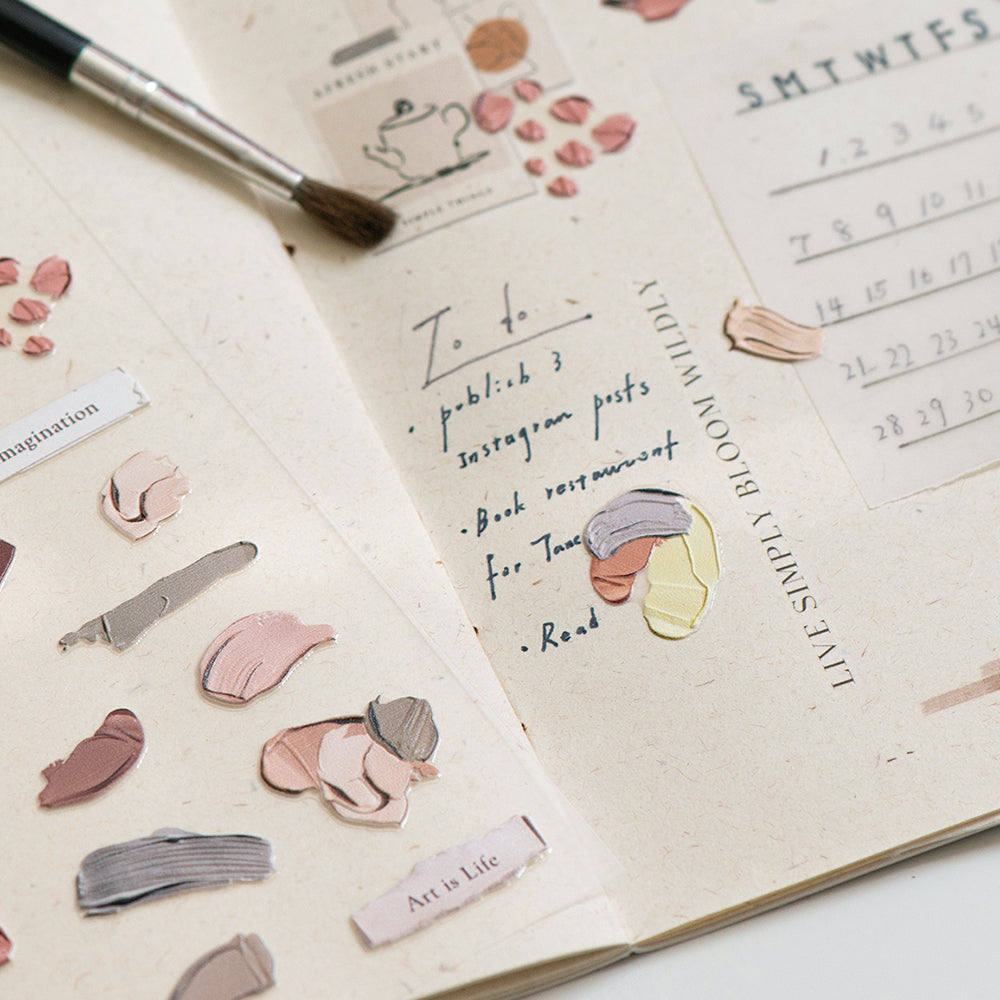 A FRESH START
SIMPLE THINGS
magination
Art is Life
To do
• publish 3
Instagram posts
• Book restaurant
for Jane
• Read
LIVE SIMPLY BLOOM WILDLY
S M T W T F S
1 2 3 4 5
7 8 9 10 11
14 15 16 17
21 22 23 24
28 29 30